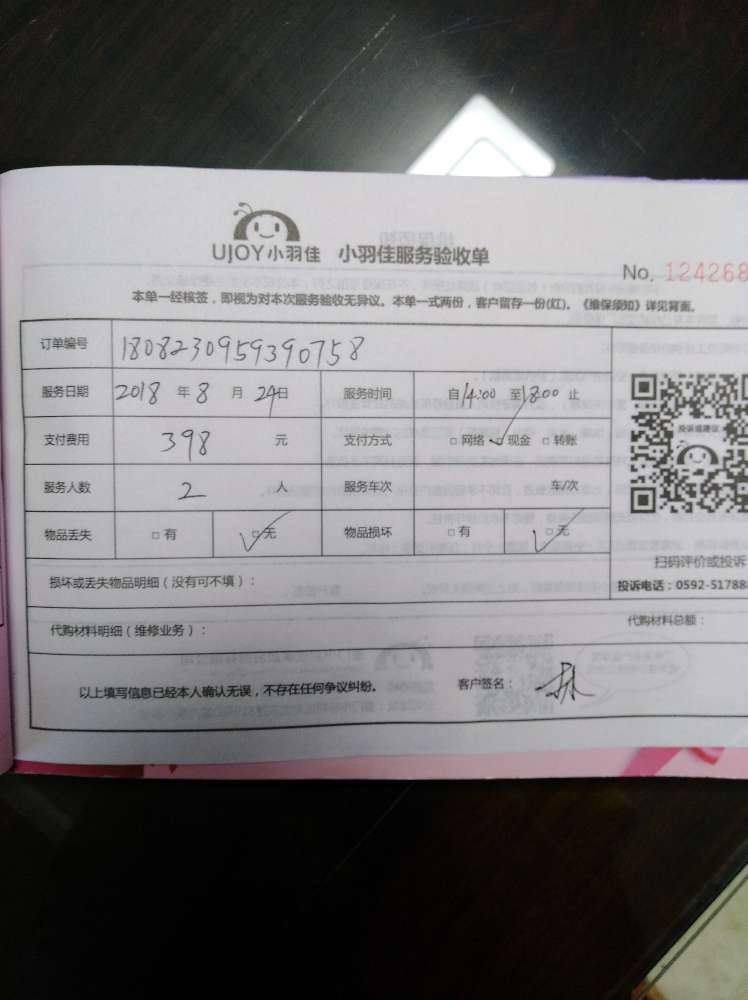 UJOY小羽佳 小羽佳服务验收单
No. 124268
本单一经核签，即视为对本次服务验收无异议。本单一式两份，客户留存一份(红)。《维保须知》详见背面。
订单编号 1808230959390758
服务日期 2018 年 8 月 24日 服务时间 自14:00 至18:00 止
支付费用 398 元 支付方式 □ 网络 □ 现金 □ 转账
服务人数 2 人 服务车次 车/次
物品丢失 □ 有 □ 无 物品损坏 □ 有 □ 无
投诉或建议
扫码评价或投诉
投诉电话：0592-517888
损坏或丢失物品明细（没有可不填）：
代购材料明细（维修业务）： 代购材料总额：
以上填写信息已经本人确认无误，不存在任何争议纠纷。 客户签名：